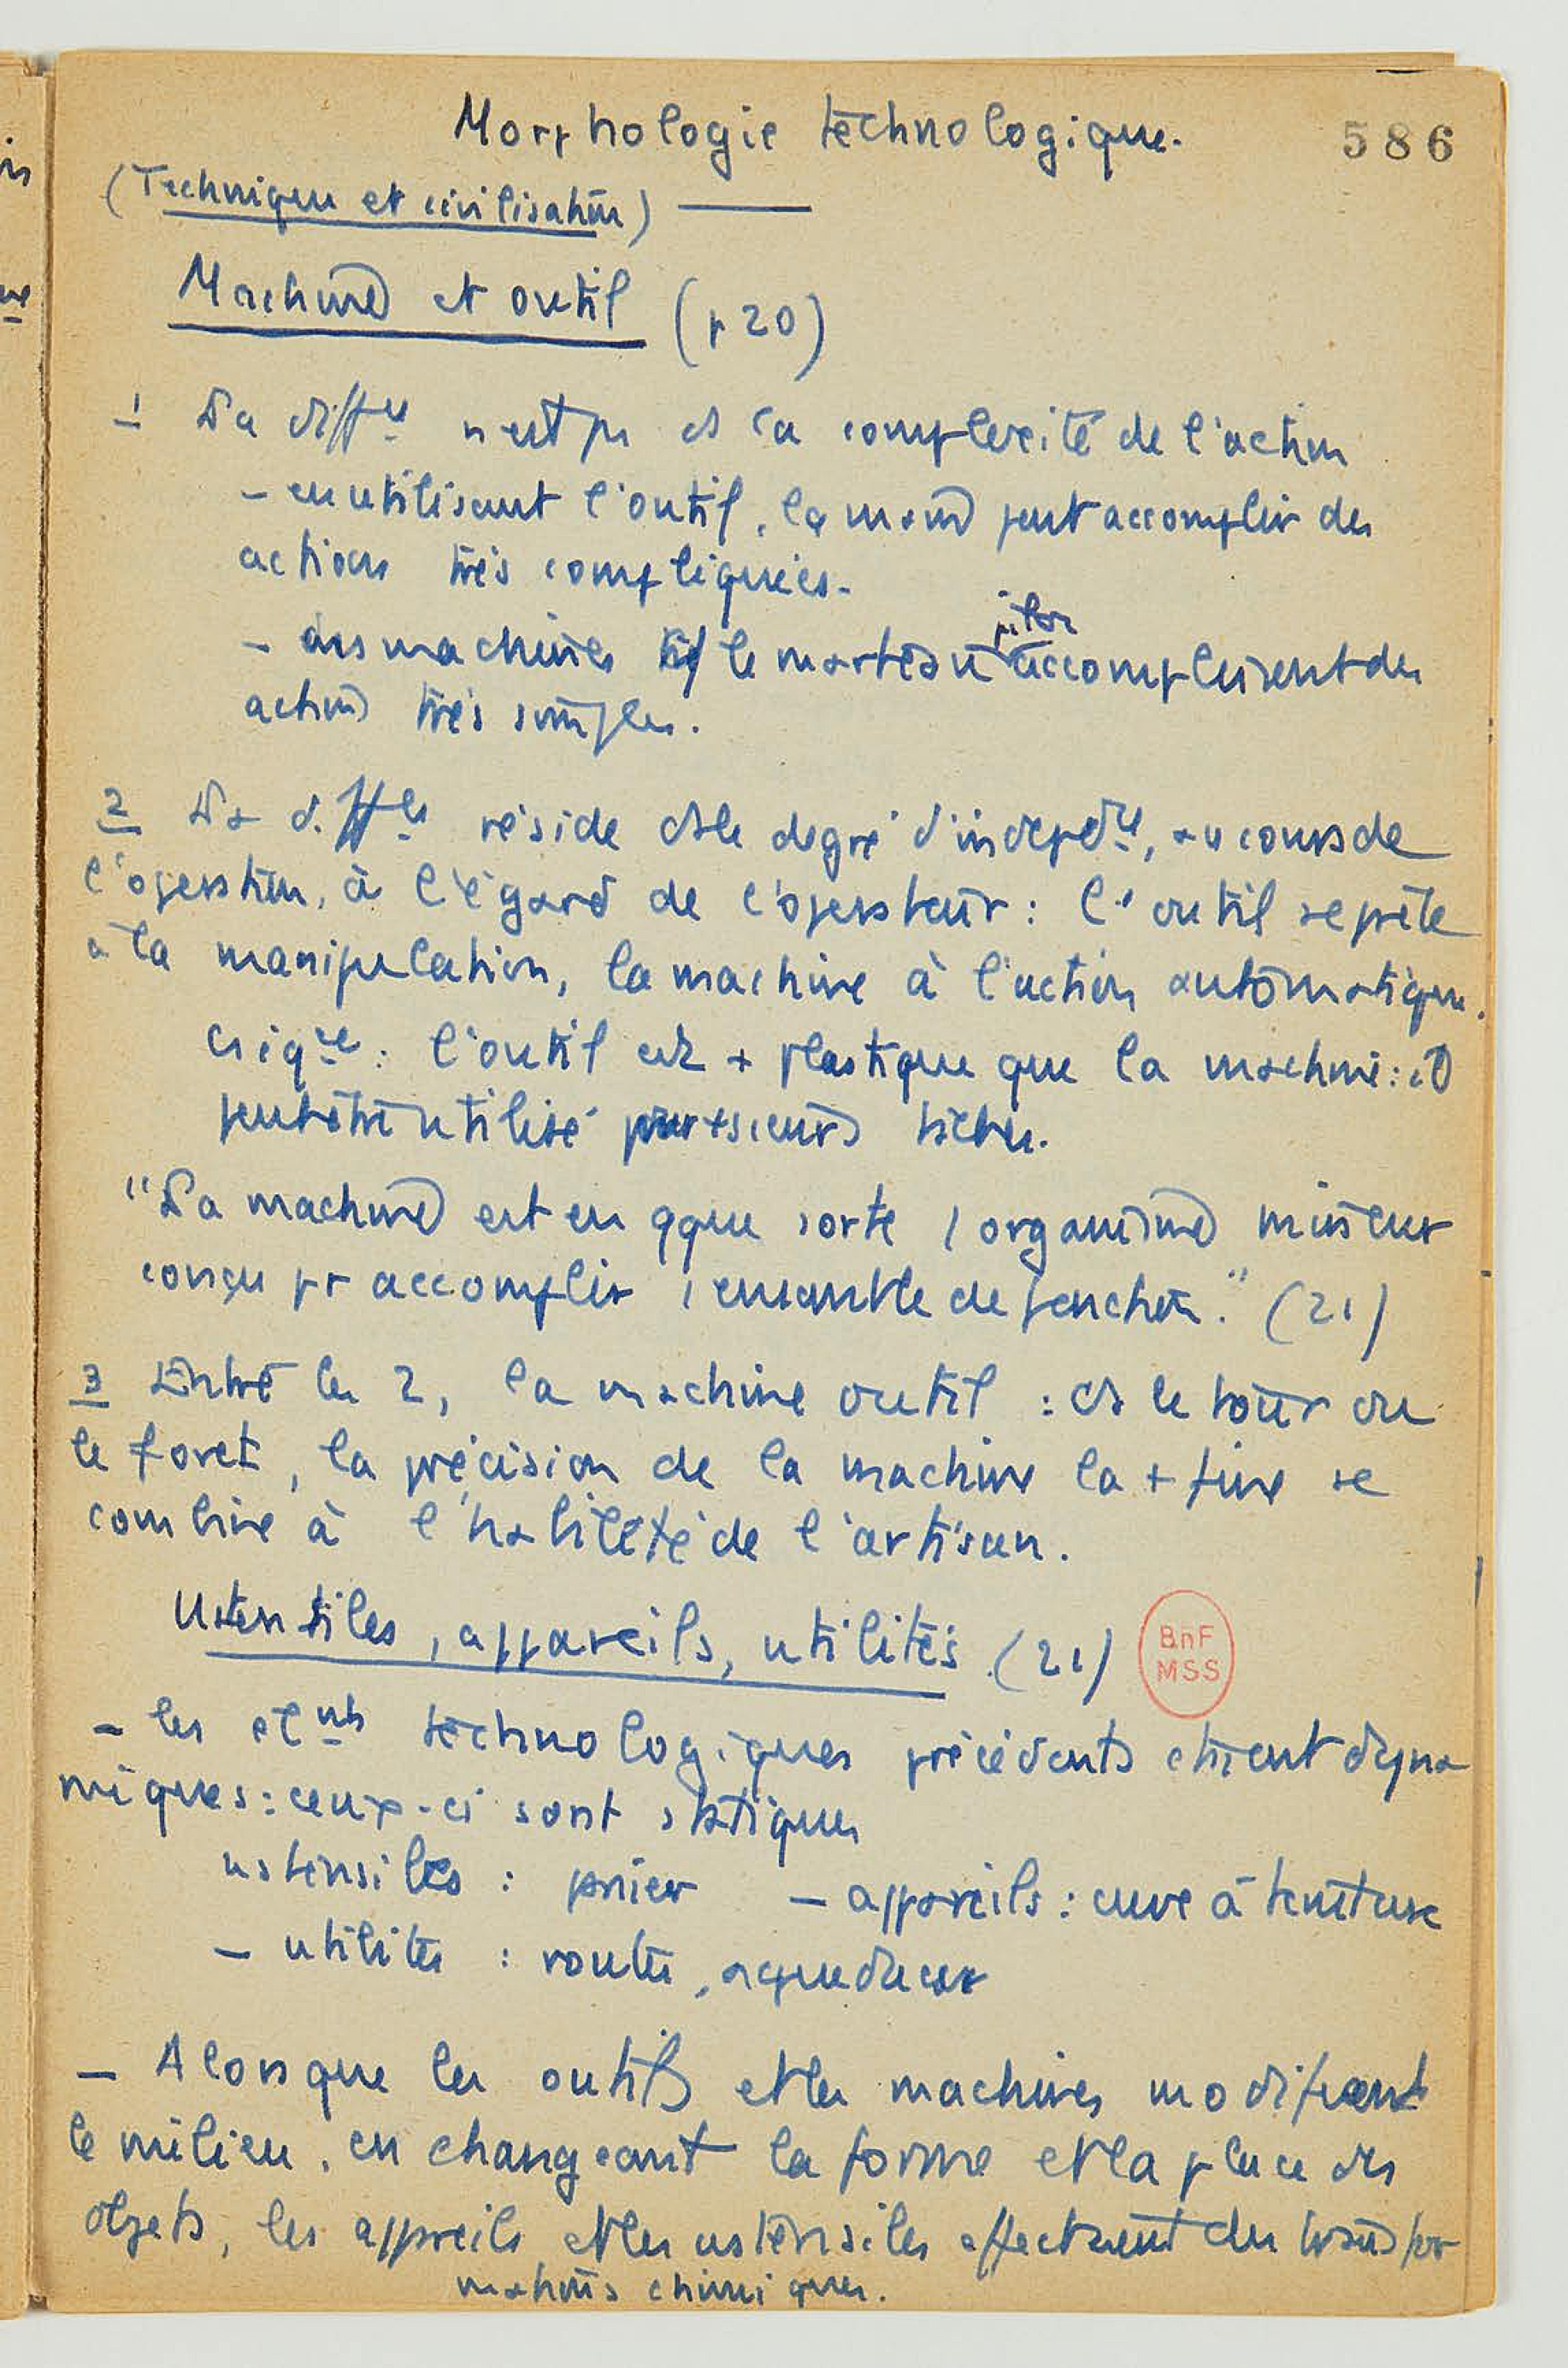 Morphologie technologique.
586
(Technique et civilisation)
Machine et outil (p 20)
1 La diffce n'est pas ds la complexité de l'action
- en utilisant l'outil, la main peut accomplir des
actions très compliquées.
- des machines tq le marteau pilon accomplissent des
actions très simples.
2 La diffce réside ds le degré d'indepdce, au cours de
l'opération, à l'égard de l'opérateur : l'outil se prête
à la manipulation, la machine à l'action automatique.
csiqce : l'outil est + plastique que la machine : il
peut être utilisé pour +sieurs tâches.
"La machine est en qque sorte 1 organisme mineur
conçu pr accomplir 1 ensemble de fonction." (21)
3 Entre les 2, la machine outil : ds le tour ou
le foret, la précision de la machine la + fine se
combine à l'habileté de l'artisan.
Ustensiles, appareils, utilités (21)
BnF
MSS
- les elmts technologiques précédents étaient dyna
miques : ceux-ci sont statiques
ustensiles : panier - appareils : cuve à teinture
- utilités : routes, aqueducs
- Alors que les outils et les machines modifient
le milieu, en changeant la forme et la place des
objets, les appareils et les ustensiles effectuent des transfor
mations chimiques.